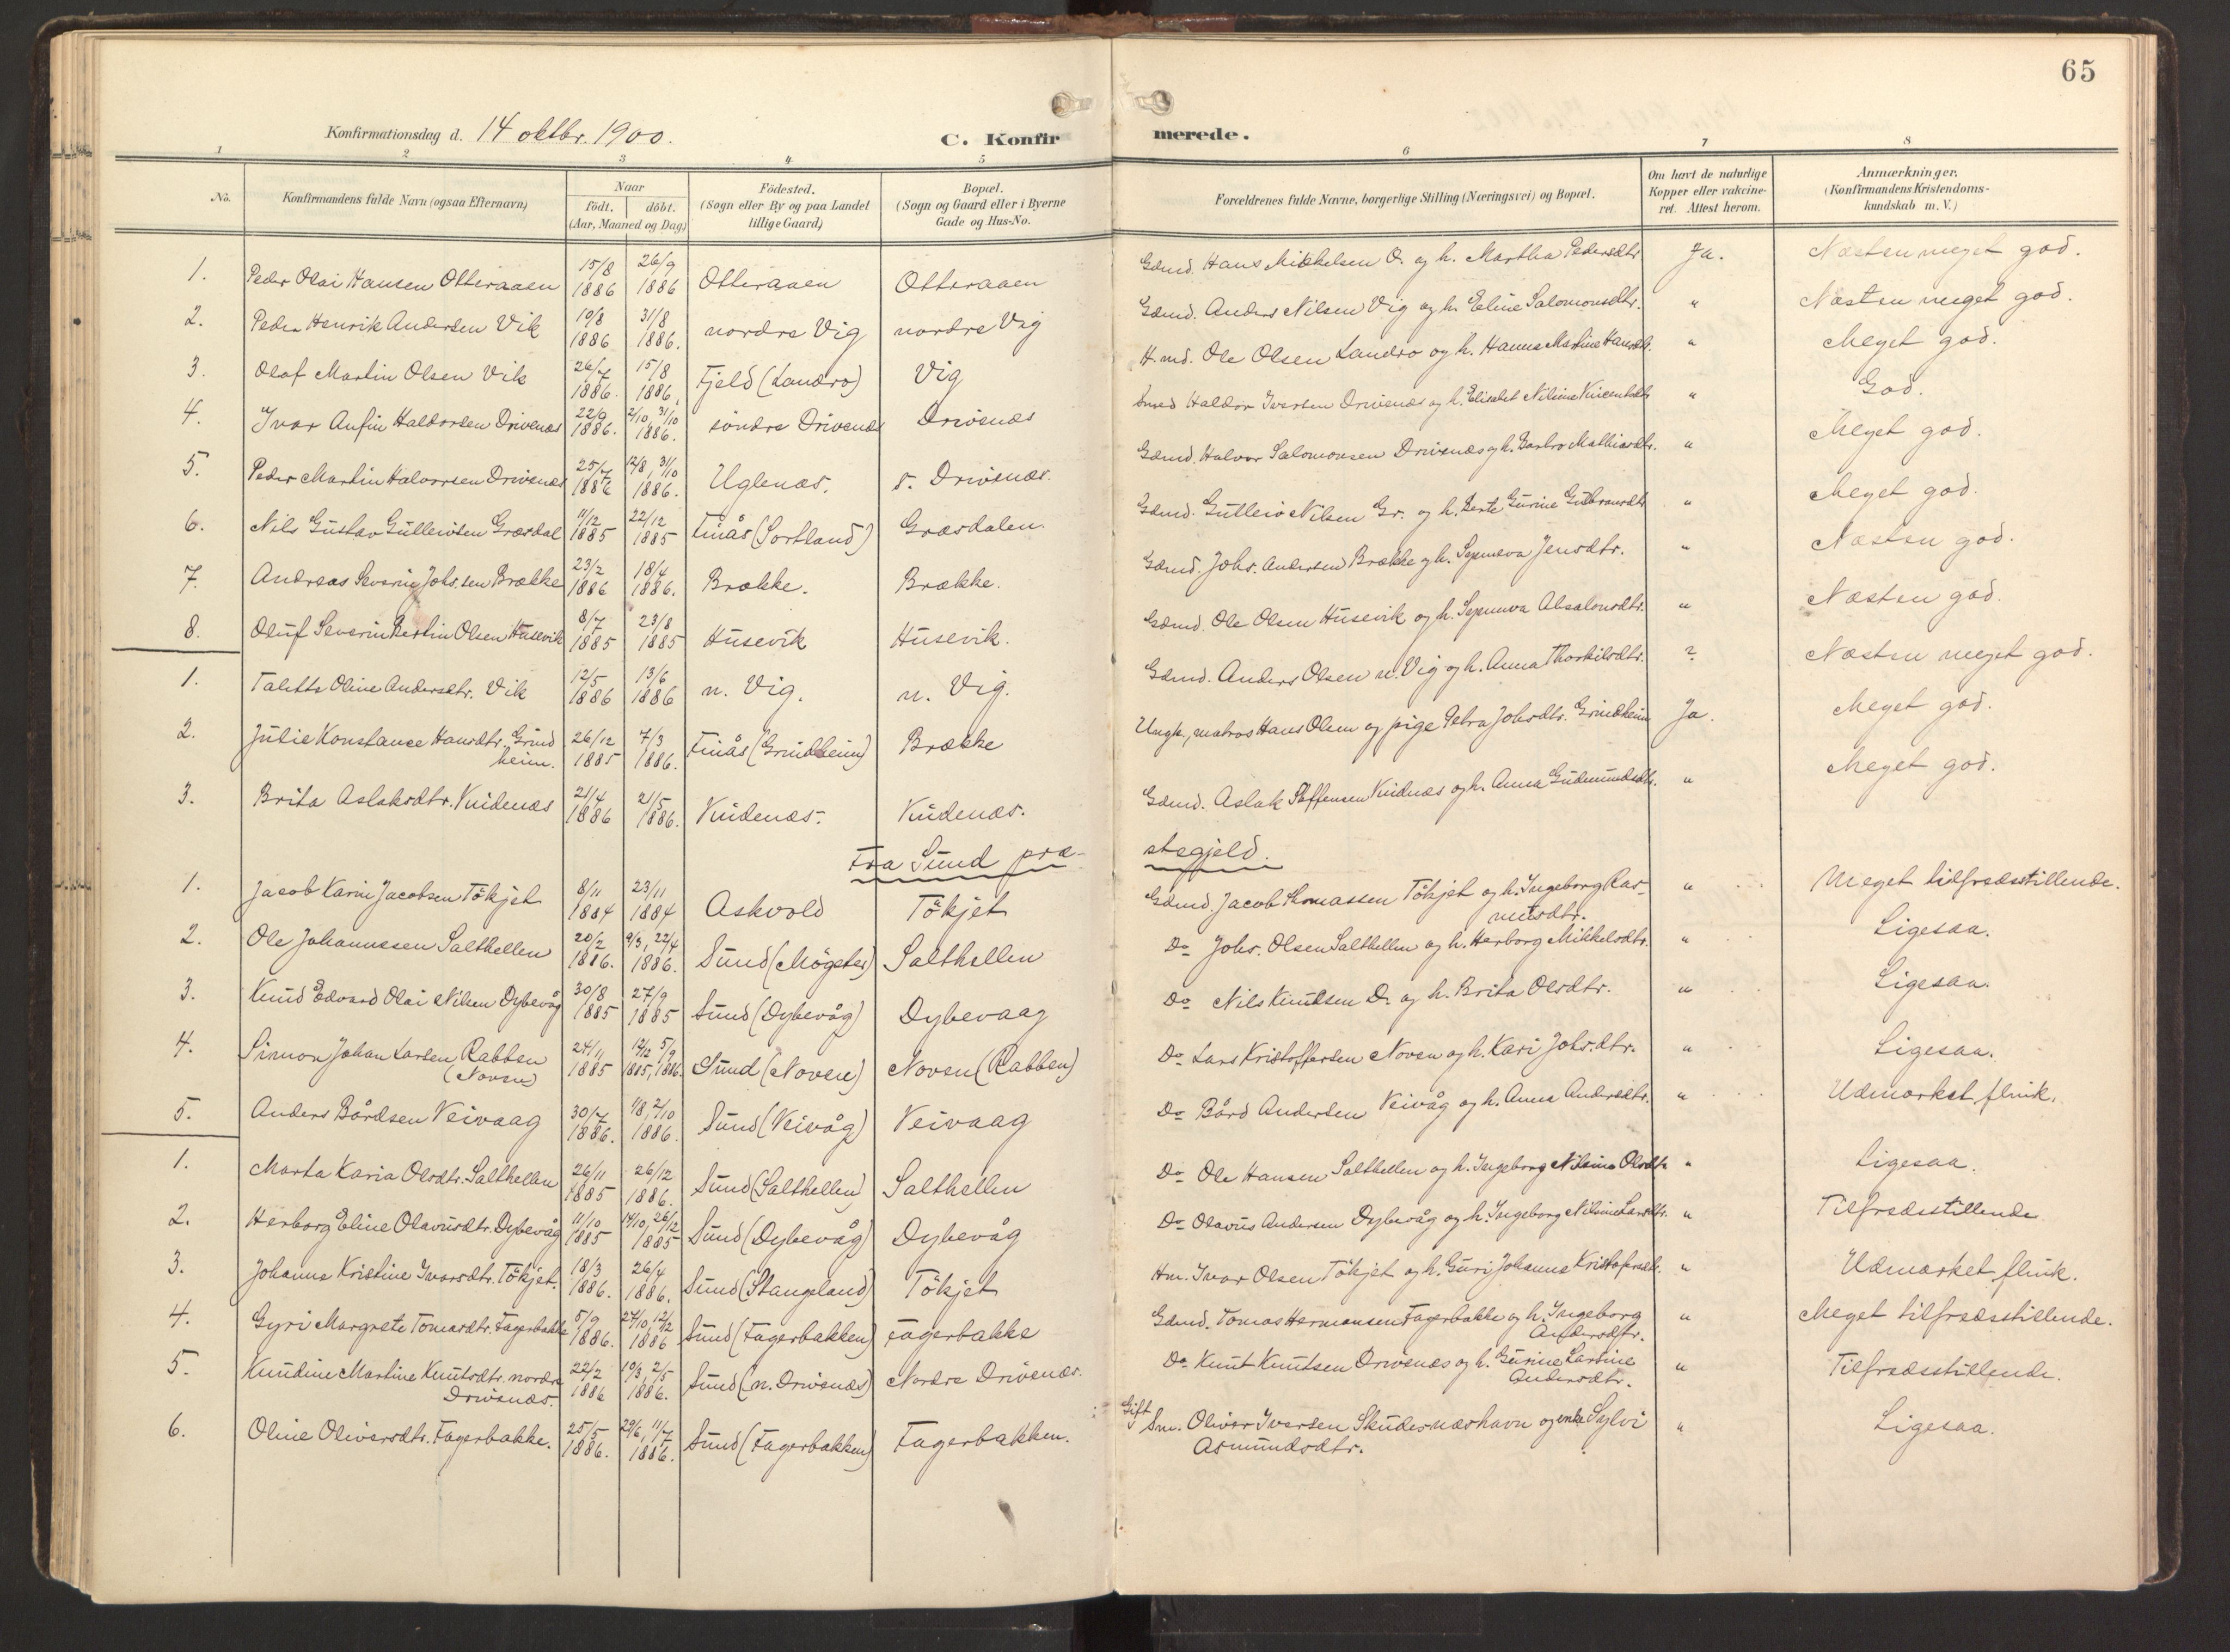 65
Konfirmationsdag d. 14 oktbr. 1900. C. Konfirmerede.
1 2 3 4 5 6 7 8
No. Konfirmandens fulde Navn (ogsaa Efternavn) Naar födt. döbt. (Aar, Maaned og Dag) Födested. (Sogn eller By og paa Landet tillige Gaard) Bopæl. (Sogn og Gaard eller i Byerne Gade og Hus-No. Forældrenes fulde Navne, borgerlige Stilling (Næringsvei) og Bopæl. Om havt de naturlige Kopper eller vakcineret. Attest herom. Anmærkninger. (Konfirmandens Kristendomskundskab m. V.)
1. Peder Olai Hansen Otteraaen 15/8 1886 26/9 1886 Otteraaen Otteraaen Gdmd. Hans Mikkelsen O. og h. Martha Pedersdtr. Ja. Næsten meget god.
2. Peder Henrik Andersen Vik 10/8 1886 31/8 1886. nordre Vig nordre Vig Gdmd. Anders Nilsen Vig og h. Eline Salomonsdtr. " Næsten meget god.
3. Olaf Martin Olsen Vik 26/7 1886. 15/8 1886. Fjeld (Landro) Vig H.md. Ole Olsen Landro og h. Hanna Martine Hansdtr. " Meget god.
4. Ivar Anfin Haldorsen Drivenes 22/9 1886. 2/10, 31/10 1886. söndre Drivenes Drivenes Smed Haldor Iversen Drivenes og h. Elisabet Nilsine Vincentsdtr. " God.
5. Peder Martin Halvorsen Drivenes 25/7 1886 12/8, 31/10 1886. Uglenæs. s. Drivenæs. Gdmd. Halvor Salomonsen Drivenæs og h. Barbro Mathiasdtr. " Meget god.
6. Nils Gustav Gulleivsen Græsdal 11/12 1885 22/12 1885 Finås (Sortland) Græsdalen. Gdmd. Gulleiv Nilsen Gr. og h. Berte Gurine Gulbransdtr. " Meget god.
7. Andreas Severin Johs.sen Brække 23/2 1886 18/4 1886. Brække. Brække. Gdmd. Johs. Andersen Brække og h. Synneva Jensdtr. " Næsten god.
8. Oluf Severin Bertin Olsen Husevik 8/7 1885 23/8 1885 Husevik Husevik. Gdmd. Ole Olsen Husevik og h. Synneva Absalonsdtr. " Næsten god.
1. Taletta Oline Andersdtr. Vik 12/5 1886 13/6 1886 n. Vig. n. Vig. Gdmd. Anders Olsen n. Vig og h. Anna Thorkilsdtr. ? Næsten meget god.
2. Julie Konstance Hansdtr. Grindheim. 26/12 1885 7/3 1886. Finås (Grindheim) Brække Ungk., matros Hans Olsen og pige Petra Johsdtr. Grindheim Ja. Meget god.
3. Brita Aslaksdtr. Kuidenæs 21/4 1886 21/5 1886. Kuidenæs. Kuidenæs. Gdmd. Aslak Steffensen Kuidnæs og h. Anna Gudmundsdtr. " Meget god.
Fra Sund præstegjeld.
1. Jacob Karin Jacobsen Tökjet 8/11 1884 23/11 1884 Askvold Tökjet Gdmd. Jacob Thomassen Tökjet og h. Ingeborg Rasmusdtr. " Meget tilfredsstillende.
2. Ole Johannessen Salthellen 20/2 1886. 9/3, 22/4 1886. Sund (Mögster) Salthellen Do Johs. Olsen Salthellen og h. Herborg Mikkelsdtr. " Ligesaa.
3. Knud Edvard Olai Nilsen Dybevåg 30/8 1885 27/9 1885 Sund (Dybevåg) Dybevaag Do Nils Knudsen D. og h. Brita Olsdtr. " Ligesaa.
4. Simon Johan Larsen Rabben (Noven) 24/11 1885 12/12 1885, 5/9 1886. Sund (Noven) Noven (Rabben) Do Lars Kristoffersen Noven og h. Kari Johs.dtr. " Ligesaa.
5. Anders Bårdsen Veivaag 30/7 1886. 1/8, 2/10 1886. Sund (Veivåg) Veivaag Do Bård Andersen Veivåg og h. Anna Andersdtr. " Udmærket flink.
1. Marta Karia Olsdtr. Salthellen 26/11 1885 26/12 1886. Sund (Salthellen) Salthellen Do Ole Hansen Salthellen og h. Ingeborg Nilsine Olsdtr. " Ligesaa.
2. Herborg Eline Olavusdtr. Dybevåg 11/10 1885 14/10, 26/12 1885 Sund (Dybevåg) Dybevåg Do Olavus Andersen Dybevåg og h. Ingeborg Nilsine Larsdtr. " Tilfredsstillende
3. Johanna Kristine Ivarsdtr. Tökjet. 18/3 1886. 26/4 1886. Sund (Stangeland) Tökjet Hm. Ivar Olsen Tökjet og h. Guri Johanna Kristofersdtr. " Udmærket flink.
4. Gyri Margrete Tomasdtr. Fagerbakke 5/9 1886. 24/10, 12/12 1886 Sund (Fagerbakken) Fagerbakke Gdmd. Tomas Hermansen Fagerbakke og h. Ingeborg Andersdtr. " Meget tilfredsstillende.
5. Knudine Martine Knutsdtr. nordre Drivenæs. 22/2 1886 10/3, 2/5 1886. Sund (n. Drivenæs) Nordre Drivenæs. Do Knut Knutsen Drivenæs og h. Gurine Larsine Andersdtr. " Tilfredsstillende.
6. Oline Oliversdtr. Fagerbakke. 25/5 1886. 29/6, 11/7 1886. Sund (Fagerbakken) Fagerbakken. Gift Sm. Oliver Iversen Skudesnæshavn og enke Sylvi Asmundsdtr. " Ligesaa.